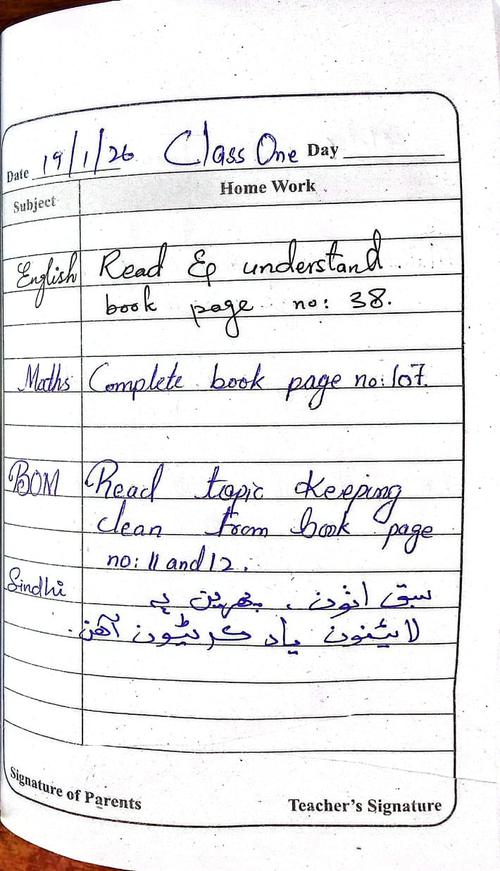 Date 19/1/26 Class One Day
Subject Home Work
English Read & understand
book page no: 38.
Maths Complete book page no: 107.
BOM Read topic Keeping
clean from book page
no: 11 and 12.
Sindhi سبق اٺون ، پهريون ٻه
لائينون ياد ڪرڻيون آهن.
Signature of Parents Teacher's Signature